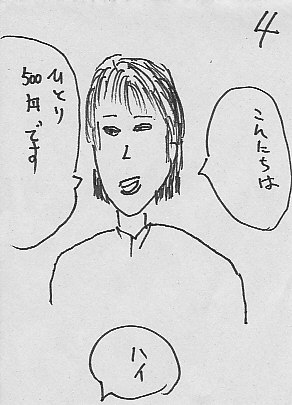 4
こんにちは
ひとり
500円です
ハイ